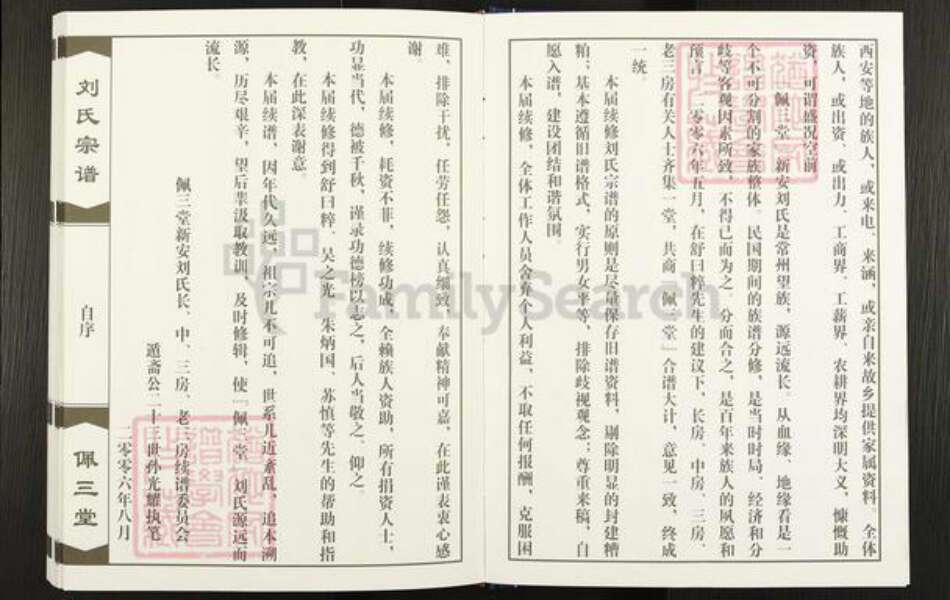 西安等地的族人，或来电、来涵，或亲自来故乡提供家属资料。全体
族人，或出资、或出力、工商界、工薪界、农耕界均深明大义，慷慨助
资，可谓盛况空前。
“佩三堂”新安刘氏是常州望族，源远流长。从血缘、地缘看是一
个不可分割的家族整体。民国期间的族谱分修，是当时时局、经济和分
歧等客观因素所致，不得已而为之。分而合之，是百年来族人的夙愿和
预言。二零零六年五月，在舒曰粹先生的建议下，长房、中房、三房、
老三房有关人士齐集一堂，共商“佩三堂”合谱大计，意见一致，终成
一统。
本届续修刘氏宗谱的原则是尽量保存旧谱资料，剔除明显的封建糟
粕；基本遵循旧谱格式，实行男女平等，排除歧视观念；尊重来稿，自
愿入谱，建设团结和谐氛围。
本届续修，全体工作人员舍弃个人利益，不取任何报酬，克服困
难，排除干扰，任劳任怨，认真细致，奉献精神可嘉，在此谨表衷心感
谢。
本届续修，耗资不菲，续修功成，全赖族人资助，所有捐资人士，
功显当代，德被千秋，谨录功德榜以志之，后人当敬之、仰之。
本届续修得到舒曰粹、吴之光、朱炳国、苏慎等先生的帮助和指
教，在此深表谢意。
本届续谱，因年代久远，祖宗几不可追，世系几近紊乱，追本溯
源，历尽艰辛，望后辈汲取教训，及时修辑，使“佩三堂”刘氏源远而
流长。
佩三堂新安刘氏长、中、三房、老三房续谱委员会
遁斋公二十三世孙光耀执笔
二零零六年八月
刘氏宗谱
自序
佩三堂
FamilySearch